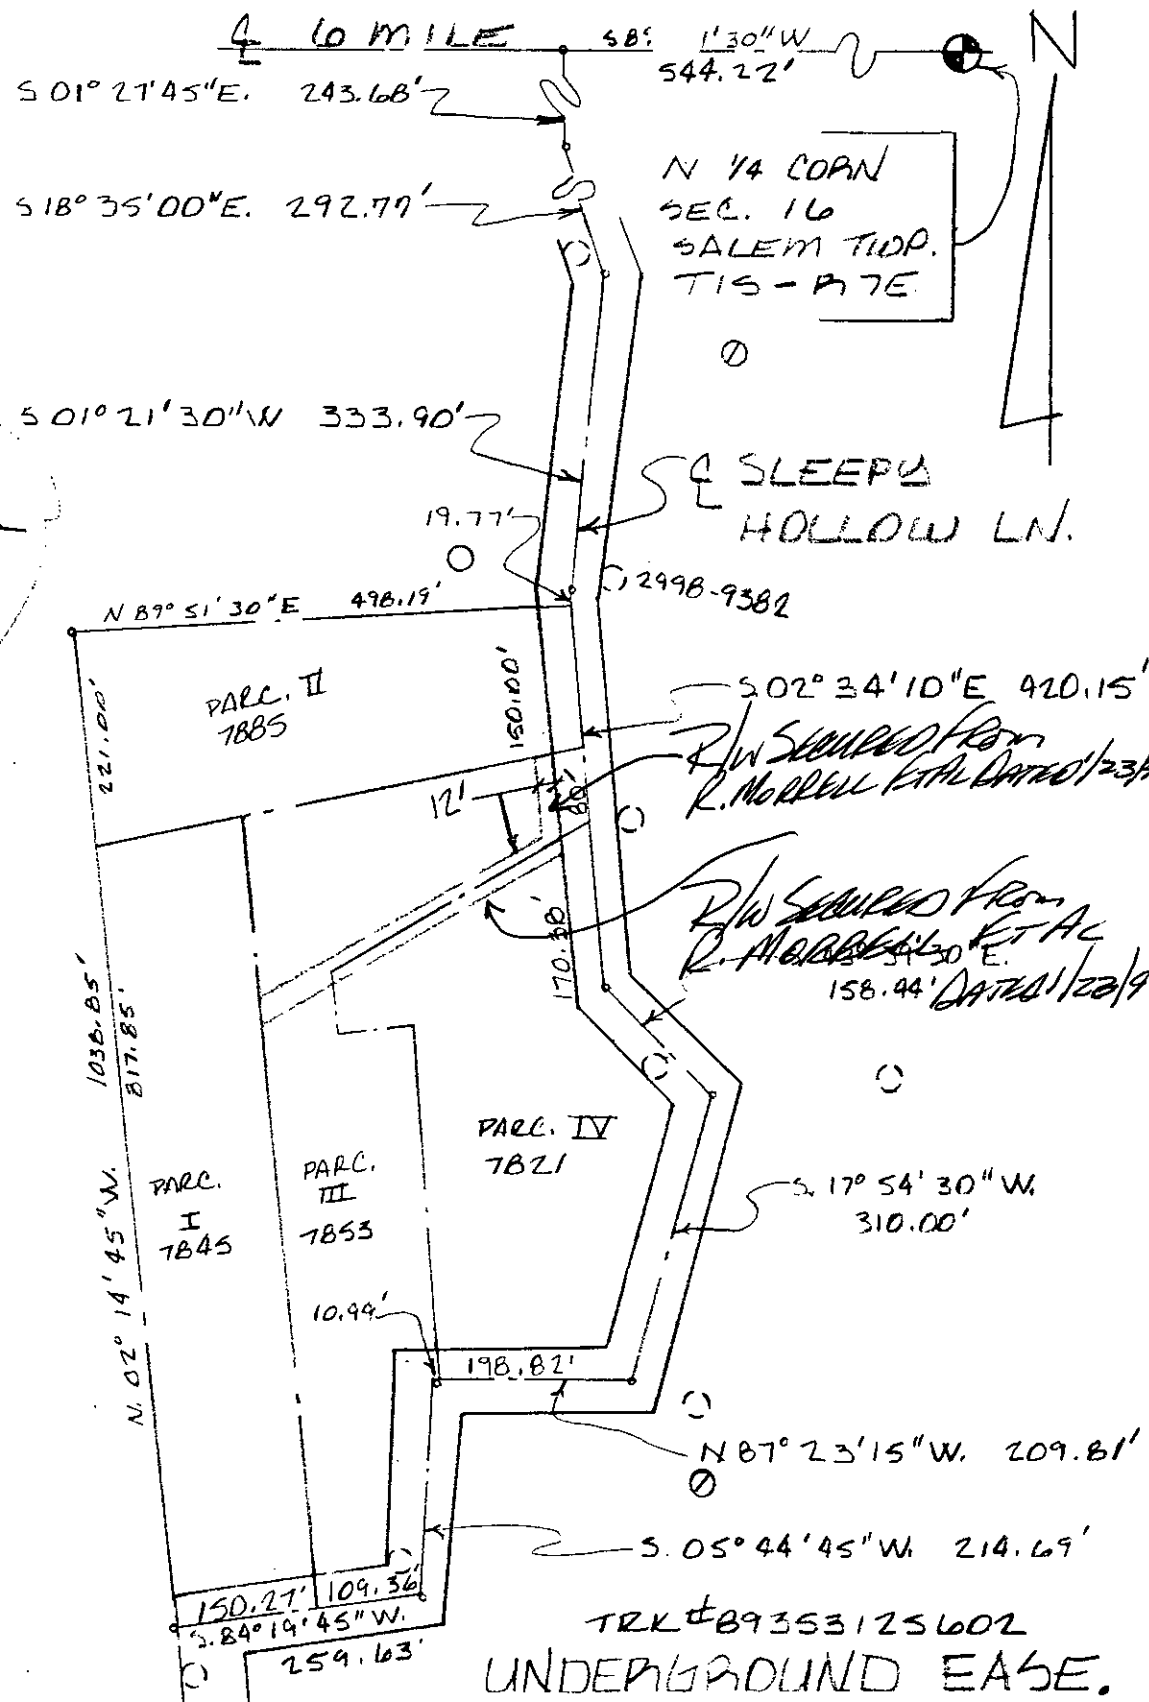 ℄ 6 MILE
1'30"W
544.22'
N
S 01° 27'45"E. 243.68'
N 1/4 CORN
SEC. 16
SALEM TWP.
T1S - R7E
S 18° 35'00"E. 292.77'
S 01° 21'30"W 333.90'
℄ SLEEPY
HOLLOW LN.
19.77'
2998-9382
N 89° 51'30"E 498.19'
PARC. II
7885
221.00'
150.00'
S 02° 34'10"E 420.15'
R/W SECURED FROM
R. MORRELL ET AL DATED 1/23/
12'
80'
R/W SECURED FROM
R. MORRELL ET AL
30"E.
158.44' DATED 1/23/9
170.38'
1038.85'
817.85'
N. 02° 14' 45" W.
PARC. IV
7821
PARC.
I
7845
PARC.
III
7853
S. 17° 54' 30" W.
310.00'
10.99'
198.82'
N 87° 23'15"W. 209.81'
S. 05° 44'45"W. 214.69'
150.27' 109.36'
S. 84° 19'45"W.
259.63'
TRK #89353125602
UNDERGROUND EASE.